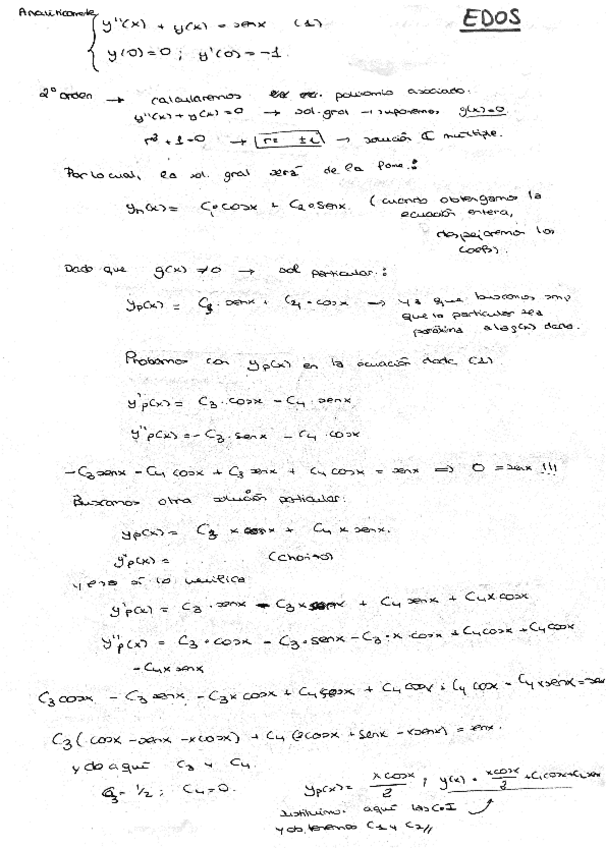 EDOS
Analíticamente
y''(x) + y(x) = senx (1)
y(0)=0 ; y'(0)=-1
2º orden → calcularemos polinomio asociado.
y''(x)+y(x)=0 → sol. gral → suponemos g(x)=0
r²+1=0 → r= ±i → solución ℂ múltiple.
Por lo cual, la sol. gral será de la forma:
yn(x)= C₁·cosx + C₂·senx. (cuando obtengamos la
ecuación entera,
despejaremos los
coefs).
Dado que g(x) ≠0 → sol particular:
yp(x) = C₃·senx + C₄·cosx → ya que buscamos
que la particular sea
próxima a la g(x) dada.
Probamos con yp(x) en la ecuación dada (1)
y'p(x) = C₃·cosx - C₄·senx
y''p(x) = -C₃·senx - C₄·cosx
-C₃senx - C₄ cosx + C₃ senx + C₄ cosx = senx ⟹ 0 = senx !!!
Buscamos otra solución particular:
yp(x) = C₃ x cosx + C₄ x senx.
y'p(x) = ........
y esta sí lo verifica
y'p(x) = C₃·senx - C₃x senx + C₄senx + C₄xcosx
y''p(x) = C₃·cosx - C₃·senx - C₃·x cosx + C₄cosx + C₄cosx
-C₄x senx
C₃cosx - C₃ senx - C₃x cosx + C₄ + C₄ cosx + C₄ cosx - C₄xsenx = sen
C₃(cosx - senx - xcosx) + C₄(2cosx + senx - xsenx) = senx.
y de aquí C₃ y C₄.
C₃ = 1/2 ; C₄=0.
yp(x) = xcosx/2 ; y(x) = xcosx/2 + C₁cosx+C₂senx
sustituimos aquí las C.I
y obtenemos C₁ y C₂//